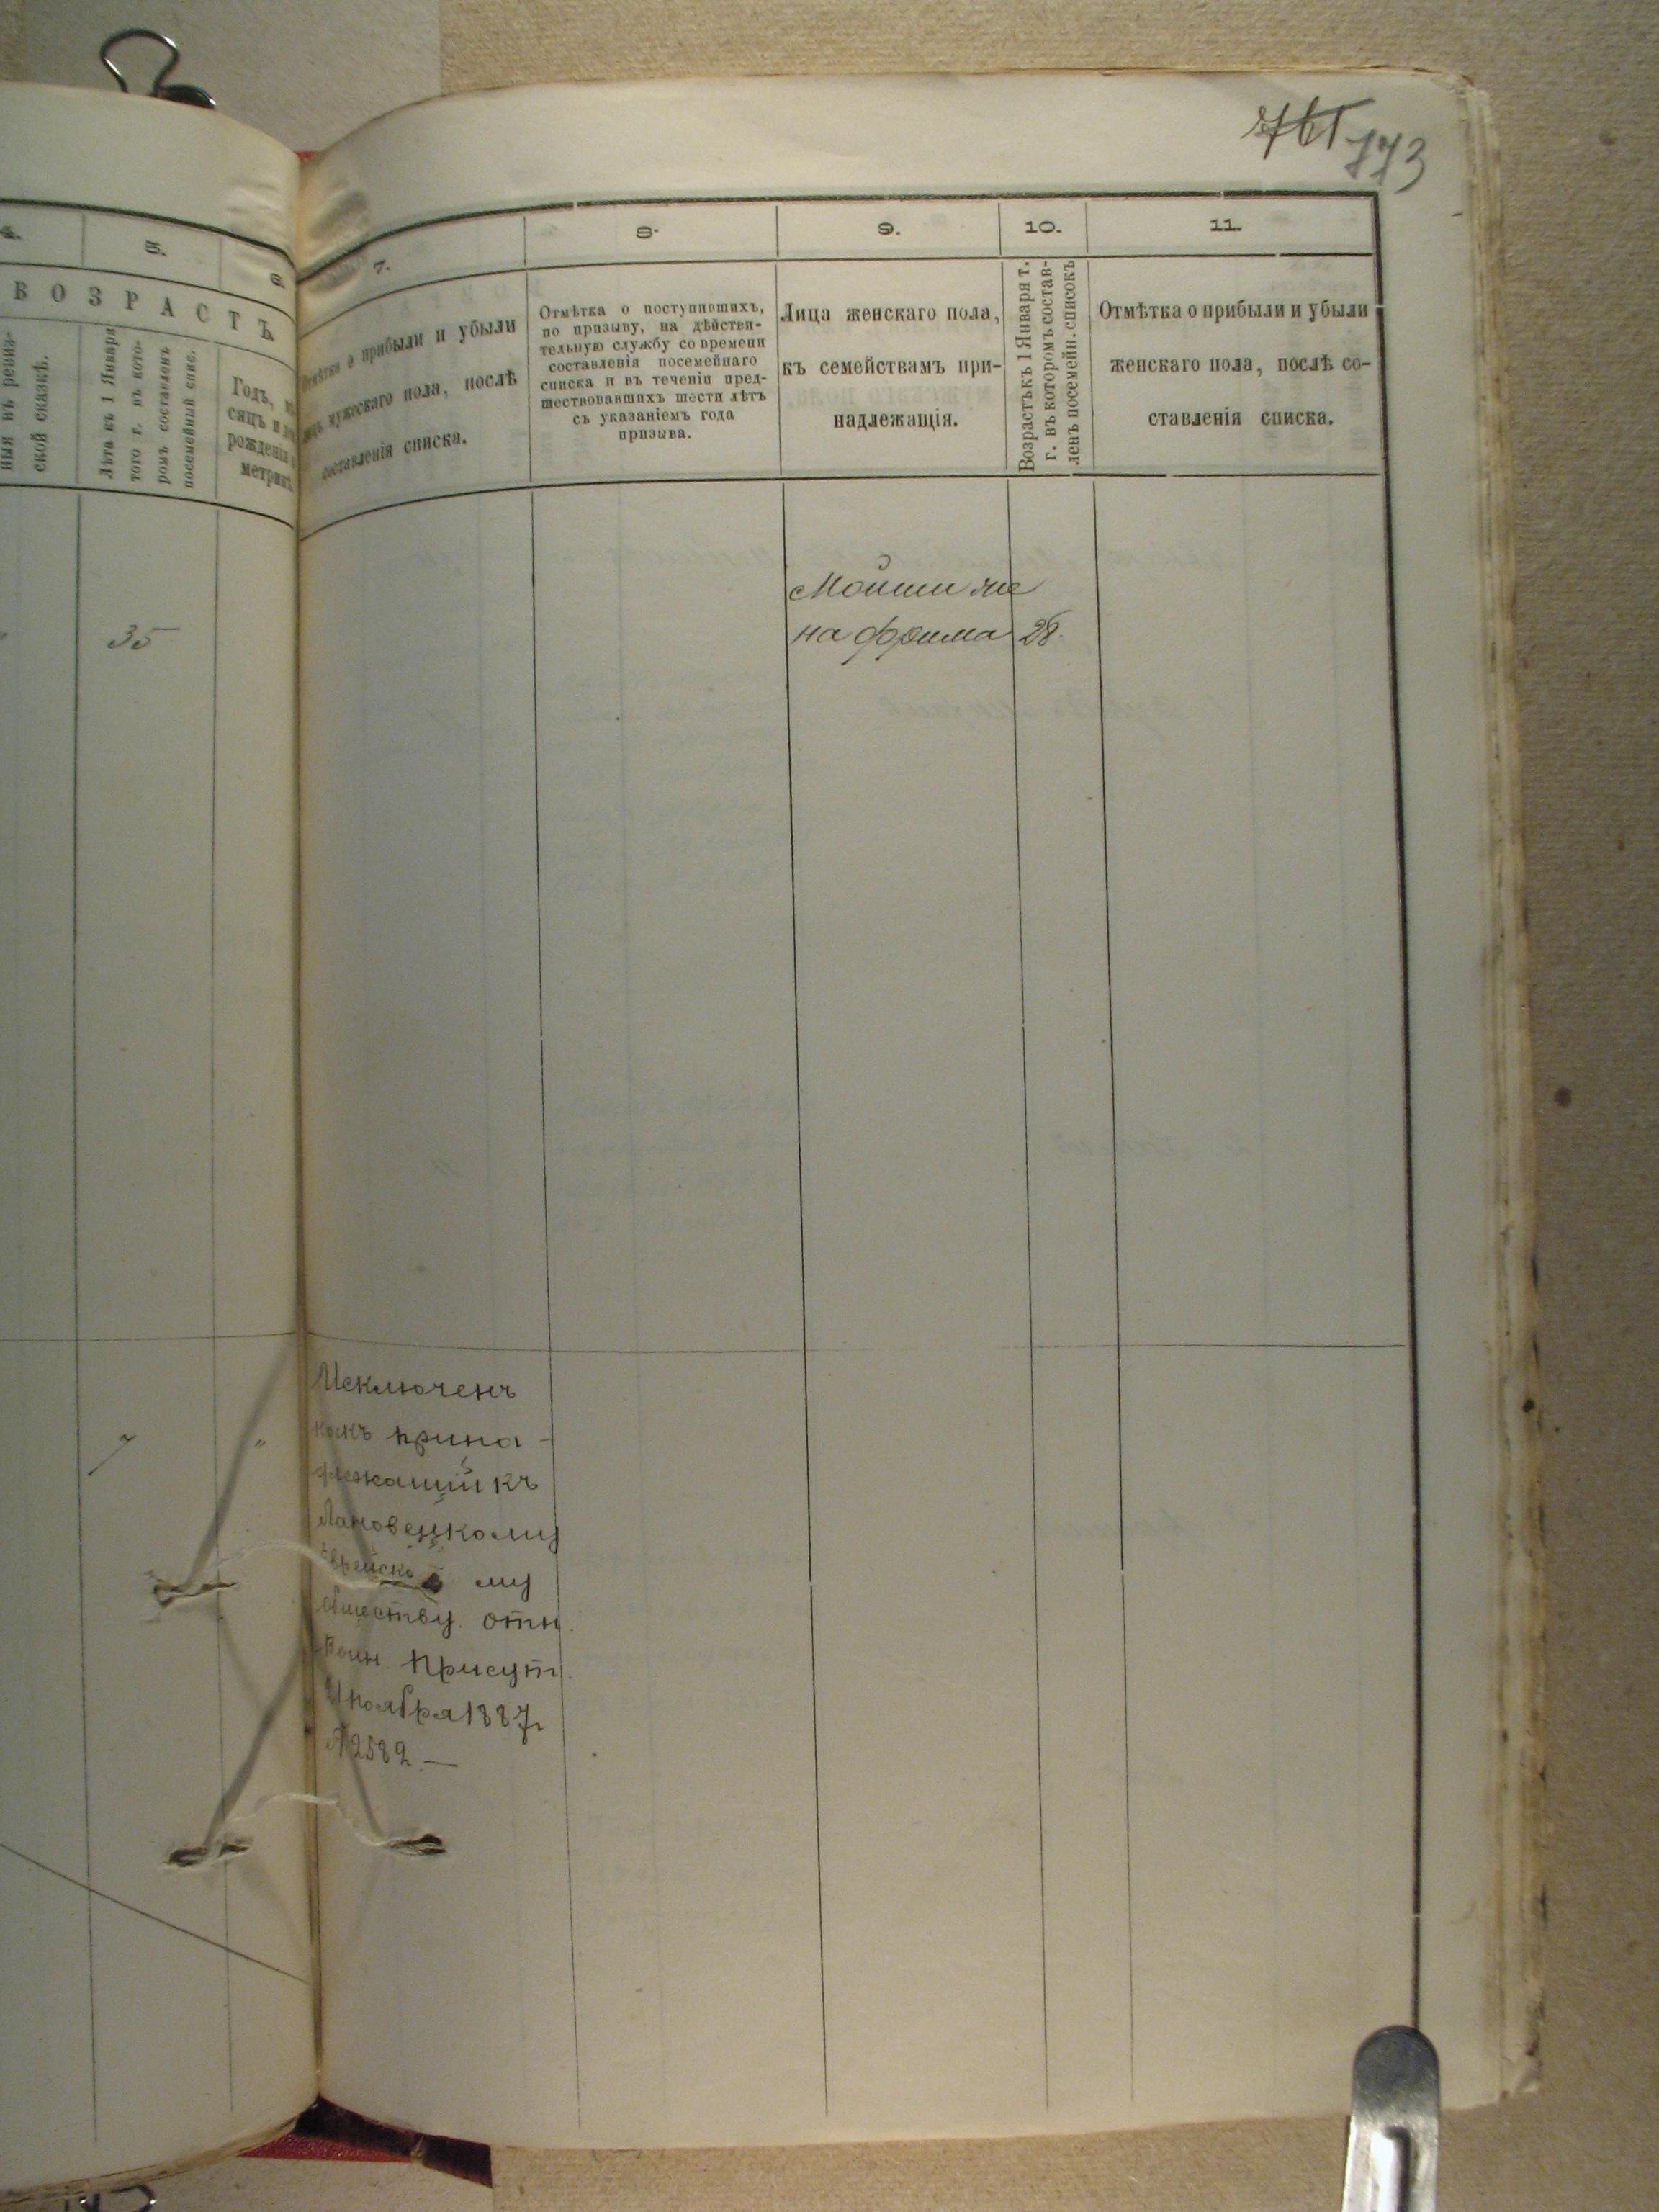 173
4.
5.
6.
7.
8.
9.
10.
11.
ВОЗРАСТЪ
ской сказкѣ.
Лѣта къ 1 Января
того г. въ кото-
ромъ составленъ
посемейный спис.
Годъ, мѣ
сяцъ и
рожденія
метрик
о прибыли и убыли
мужескаго пола, послѣ
составленія списка.
Отмѣтка о поступившихъ,
по призыву, на дѣйстви-
тельную службу со времени
составленія посемейнаго
списка и въ теченіи пред-
шествовавшихъ шести лѣтъ
съ указаніемъ года
призыва.
Лица женскаго пола,
къ семействамъ при-
надлежащія.
Возрастъ къ 1 Января т.
г. въ которомъ состав-
ленъ посемейн. списокъ
Отмѣтка о прибыли и убыли
женскаго пола, послѣ со-
ставленія списка.
35
Мошки же
на Фрима 28.
7 "
Исключенъ
какъ прина-
длежащій къ
Лановецкому
Еврейско му
обществу. отн.
Воин. Присут.
Ноября 1887г
№ 2582.—